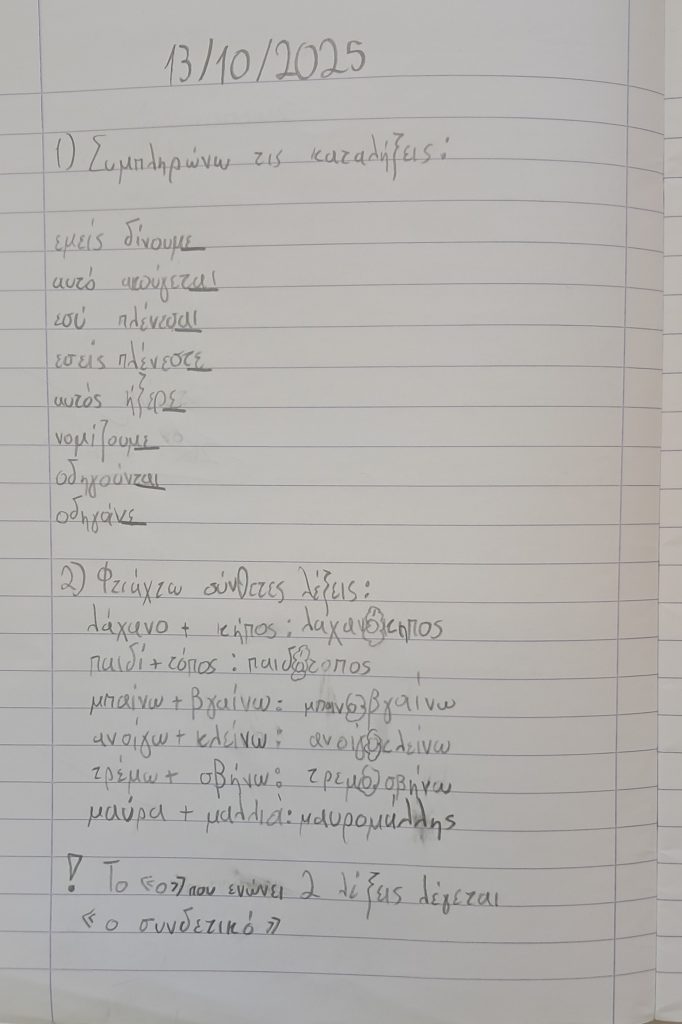 13/10/2025
1) Συμπληρώνω τις καταλήξεις:
εμείς δίνουμε
αυτό ακούγεται
εσύ πλένεσαι
εσείς πλένεστε
αυτός ήξερε
νομίζουμε
οδηγούνται
οδηγάνε
2) Φτιάχτω σύνθετες λέξεις:
λάχανο + κήπος: λαχανόκηπος
παιδί + τόπος: παιδότοπος
μπαίνω + βγαίνω: μπαινοβγαίνω
ανοίγω + κλείνω: ανοιγοκλείνω
τρέμω + σβήνω: τρεμοσβήνω
μαύρα + μαλλιά: μαυρομάλλης
! Το «ο» που ενώνει 2 λέξεις λέγεται
«ο συνδετικό»